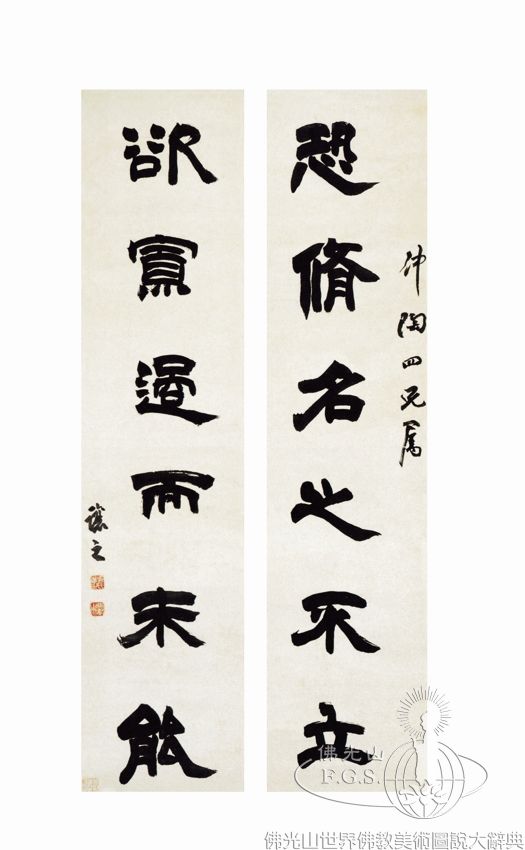 仲陶四兄屬
恐脩名之不立
欲寡過而未能
讓之
佛光山
F.G.S.
佛光山世界佛教美術圖說大辭典